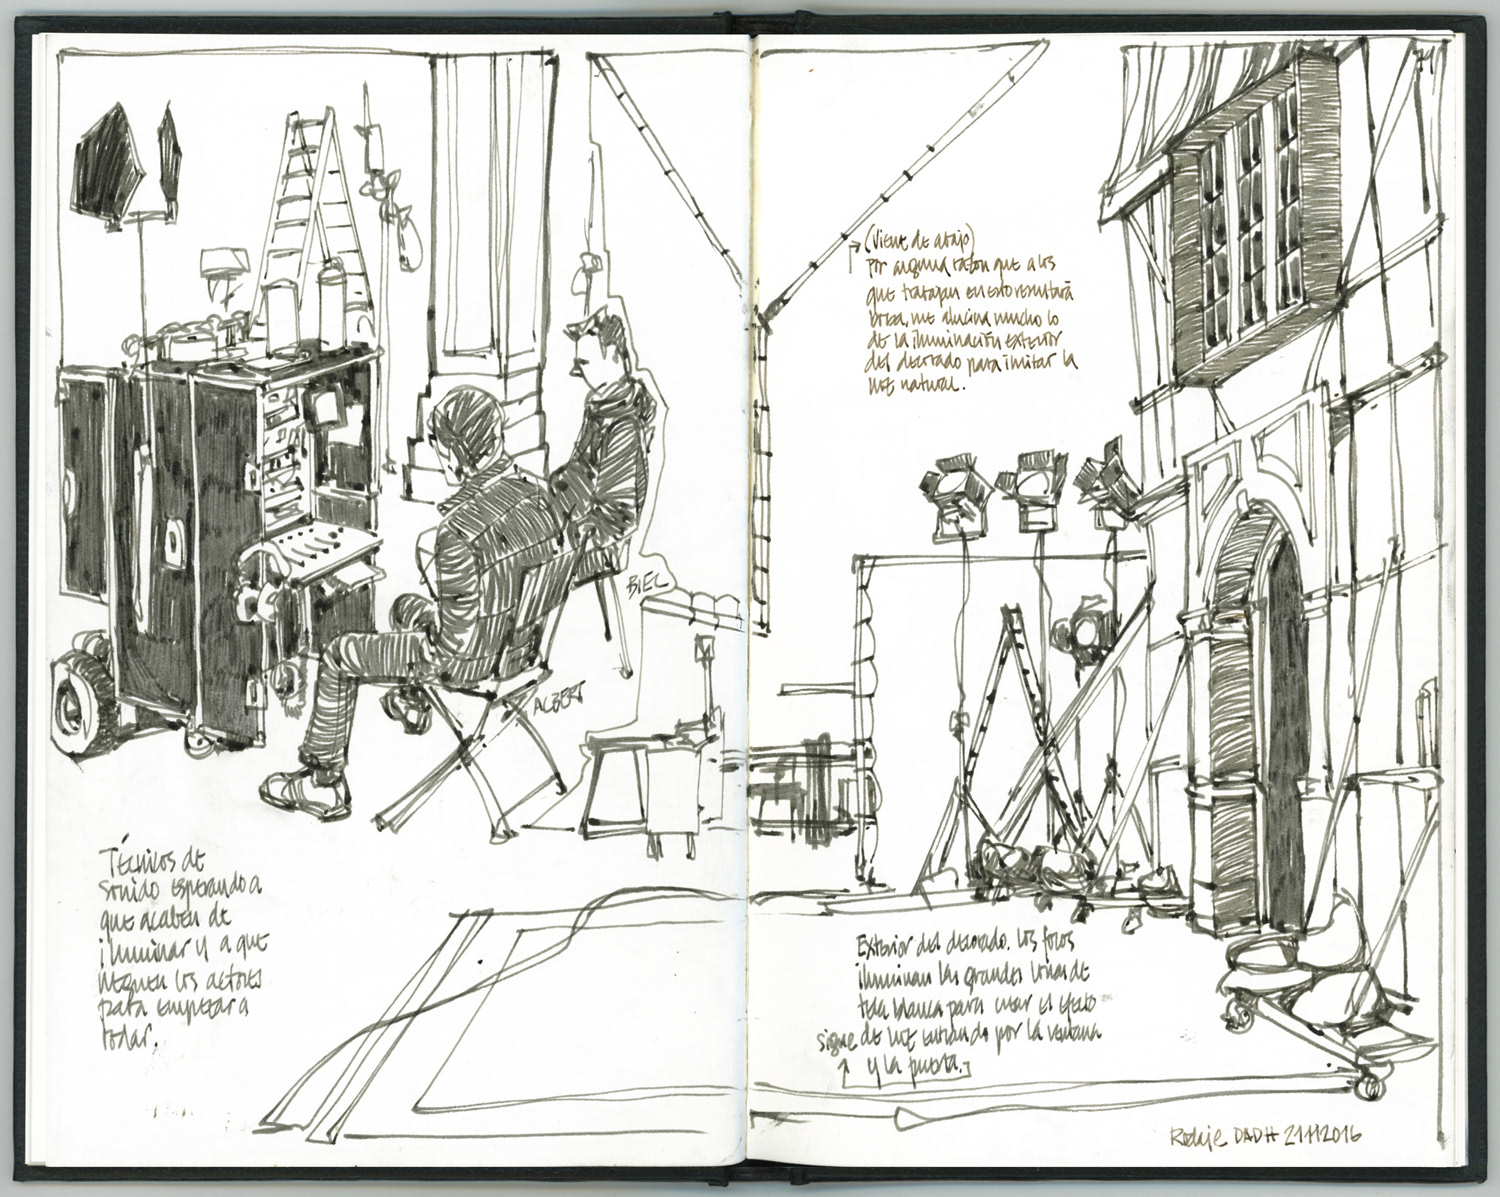 BIEL
ALBERT
Técnicos de
sonido esperando a
que acaben de
iluminar y a que
lleguen los actores
para empezar a
rodar.
(Viene de abajo)
Por alguna razón que a los
que trabajan en esto resultará
boba, me alucina mucho lo
de la iluminación exterior
del decorado para imitar la
luz natural.
Exterior del decorado. Los focos
iluminan las grandes lonas de
tela blanca para crear el efecto
sigue de luz entrando por la ventana
y la puerta.
Rodaje DADH 21112016